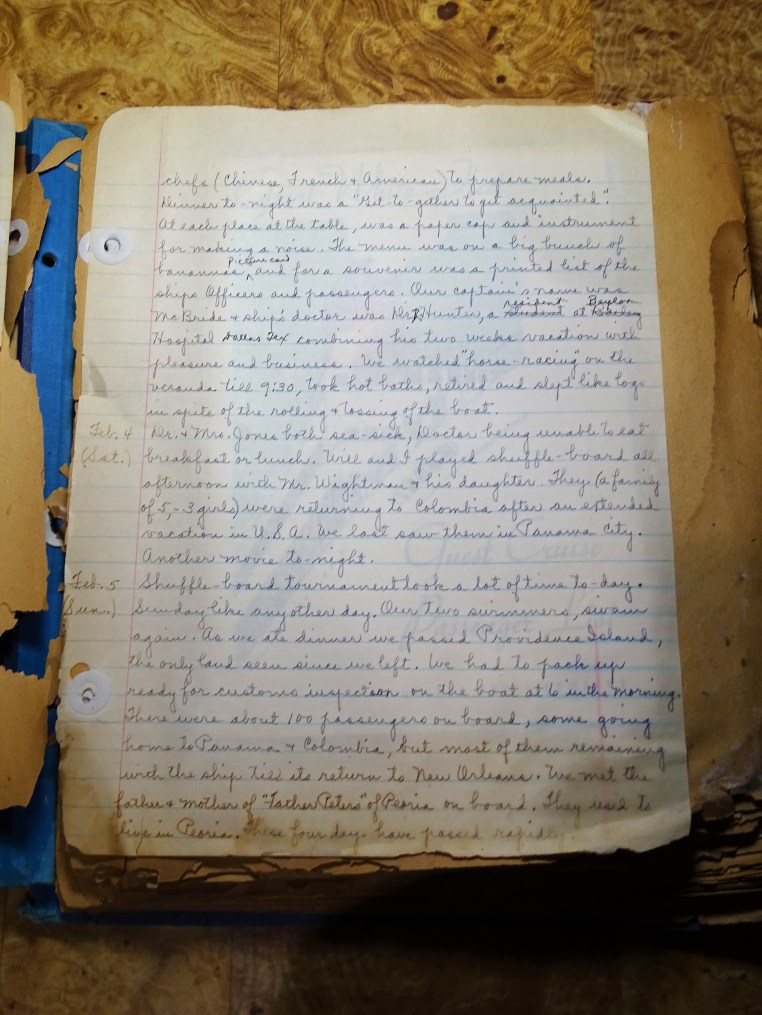 chefs (Chinese, French & American) to prepare meals.
Dinner to-night was a "Get-to-gether to get acquainted".
At each place at the table, was a paper cap and instrument
for making a noise. The menu was on a big bunch of
picture card
banannas, and for a souvenir was a printed list of the
ships Officers and passengers. Our captain's name was
resident Baylor
McBride & ship's doctor was Dr. Hunter, a student at Bailey
Hospital Dallas Tex combining his two weeks vacation with
pleasure and business. We watched "horse-racing" on the
veranda till 9:30, took hot baths, retired and slept like logs
in spite of the rolling & tossing of the boat.
Feb. 4 Dr. & Mrs. Jones both sea-sick, Doctor being unable to eat
(Sat.) breakfast or lunch. Will and I played shuffle-board all
afternoon with Mr. Wightman & his daughter. They (a family
of 5,-3 girls) were returning to Colombia after an extended
vacation in U.S.A. We last saw them in Panama City.
Another movie to-night.
Feb. 5 Shuffle-board tournament took a lot of time to-day.
Sun.) Sunday like any other day. Our two swimmers, swam
again. As we ate dinner we passed Providence Island,
the only land seen since we left. We had to pack up
ready for customs inspection on the boat at 6 in the morning.
There were about 100 passengers on board, some going
home to Panama & Colombia, but most of them remaining
with the ship till its return to New Orleans. We met the
father & mother of "Father Peters" of Peoria on board. They used to
live in Peoria. These four days have passed rapidly.